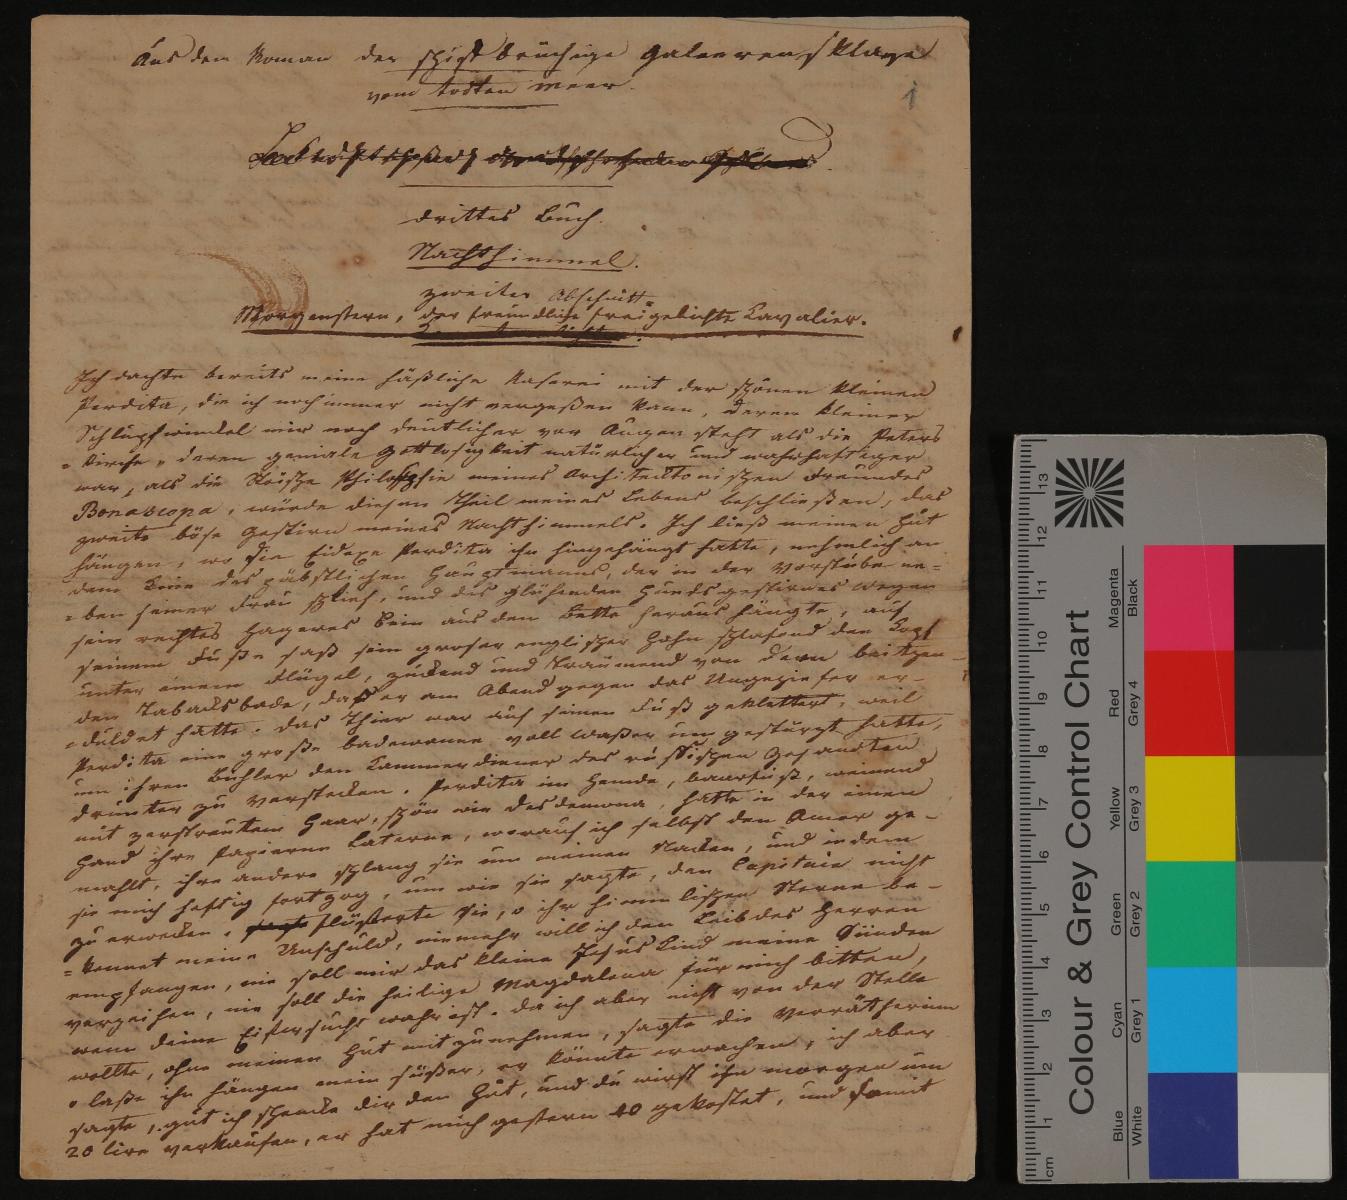 Aus dem Roman der schiffbrüchige Galeerensklave
vom todten Meer.
1
drittes Buch.
Nachthimmel.
zweiter Abschnitt
Morgenstern, der freundliche freigeliebte Cavalier.
Ich dachte bereits meine häßliche Raserei mit der schönen kleinen
Perdita, die ich noch immer nicht vergeßen kann, deren kleiner
Schlupfwinkel mir noch deutlicher vor Augen steht als die Peters
kirche, deren geniale Gottlosigkeit natürlicher und wahrhaftiger
war, als die Philosophie meines Architecktonischen Freundes
Bonascopa, würde diesen Theil meines Lebens beschließen, das
zweite böse Gestirn meines Nachthimmels. Ich ließ meinen Hut
hängen, wo die Eidexe Perdita ihn hingehängt hatte, nehmlich an
dem Knie des päbstlichen Hauptmanns, der in der Vorstube ne=
=ben seiner Frau schlief, und des glühenden Hundsgestirnes wegen
sein rechtes hageres Bein aus dem Bette heraus hängte, auf
seinem Fuße saß sein groser englischer Hahn schlafend den Kopf
unter einem Flügel, zuckend und traumend von dem beitzen=
den Tabacksbade, das er am Abend gegen das Ungeziefer er=
=duldet hatte. das Thier war auf seinen Fuß geklettert, weil
Perdita eine große badewanne voll Waßer umgestürzt hatte,
um ihren Buhler den Cammerdiener des rußischen Gesandten
drunter zu verstecken. Perdita im Hemde, baarfuß, weinend
mit zerstreutem Haar, schön wie Desdemona, hatte in der einen
Hand ihre papierne Laterne, worauf ich selbst den Amor ge=
mahlt, ihre andere schlang sie um meinen Nacken, und indem
sie mich heftig fortzog, um wie sie sagte, den Capitain nicht
zu erwecken, flüsterte sie, o ihr himmlischen Sterne be=
=kennet meine Unschuld, niemehr will ich den Leib des Herren
empfangen, nie soll mir das kleine Jesus Kind meine Sünden
verzeihen, nie soll die heilige Magdalena für mich bitten,
wenn deine Eifersucht wahr ist. da ich aber nicht von der Stelle
wollte, ohne meinen Hut mitzunehmen, sagte die Verrätherinn
laße ihn hängen mein süßer, er könnte erwachen, ich aber
sagte, gut ich schencke dir den Hut, und du wirst ihn morgen um
20 lire verkaufen, er hat mich gestern 40 gekostet, und somit